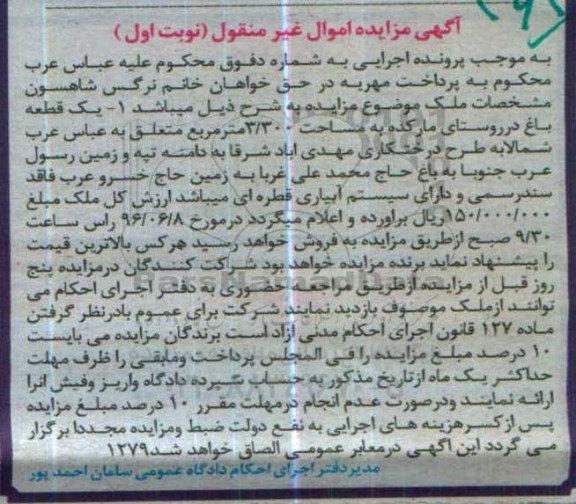 آگهی مزایده اموال غیر منقول (نوبت اول)
به موجب پرونده اجرایی به شماره دفوق محکوم علیه عباس عرب
محکوم به پرداخت مهریه در حق خواهان خانم نرگس شاهسون
مشخصات ملک موضوع مزایده به شرح ذیل میباشد ۱- یک قطعه
باغ درروستای مارکده به مساحت ۳/۳۰۰مترمربع متعلق به عباس عرب
شمالابه طرح درختکاری مهدی اباد شرقا به دامنه تپه و زمین رسول
عرب جنوبا به باغ حاج محمد علی غربا به زمین حاج خسرو عرب فاقد
سندرسمی و دارای سیستم آبیاری قطره ای میباشد ارزش کل ملک مبلغ
۱۵۰/۰۰۰/۰۰۰ریال براورده و اعلام میگردد درمورخ ۹۶/۰۶/۸ راس ساعت
۹/۳۰ صبح ازطریق مزایده به فروش خواهد رسید هرکس بالاترین قیمت
را پیشنهاد نماید برنده مزایده خواهد بود شرکت کنندگان درمزایده پنج
روز قبل از مزایده ازطریق مراجعه حضوری به دفتر اجرای احکام می
توانند ازملک موصوف بازدید نمایند شرکت برای عموم بادرنظر گرفتن
ماده ۱۲۷ قانون اجرای احکام مدنی آزاد است برندگان مزایده می بایست
۱۰ درصد مبلغ مزایده را فی المجلس پرداخت ومابقی را ظرف مهلت
حداکثر یک ماه ازتاریخ مذکور به حساب سپرده دادگاه واریز وفیش انرا
ارائه نمایند ودرصورت عدم انجام درمهلت مقرر ۱۰ درصد مبلغ مزایده
پس ازکسرهزینه های اجرایی به نفع دولت ضبط ومزایده مجددا برگزار
می گردد این آگهی درمعابر عمومی الصاق خواهد شد۱۲۷۹
مدیردفتر اجرای احکام دادگاه عمومی سامان احمد پور